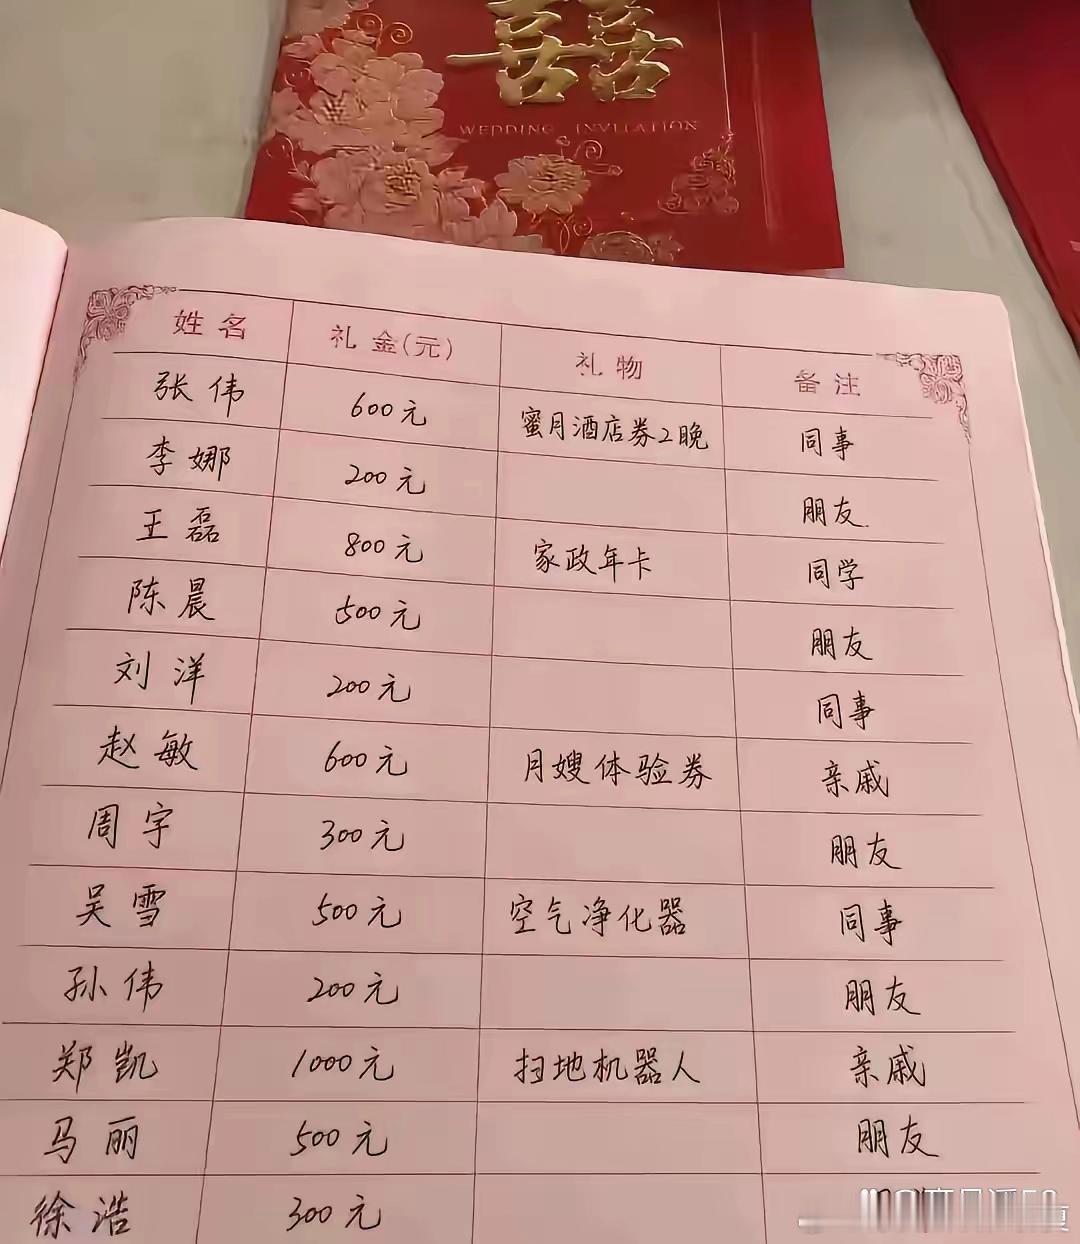 囍
WEDDING INVITATION
姓名 礼金(元) 礼物 备注
张伟 600元 蜜月酒店券2晚 同事
李娜 200元 朋友
王磊 800元 家政年卡 同学
陈晨 500元 朋友
刘洋 200元 同事
赵敏 600元 月嫂体验券 亲戚
周宇 300元 朋友
吴雪 500元 空气净化器 同事
孙伟 200元 朋友
郑凯 1000元 扫地机器人 亲戚
马丽 500元 朋友
徐浩 300元